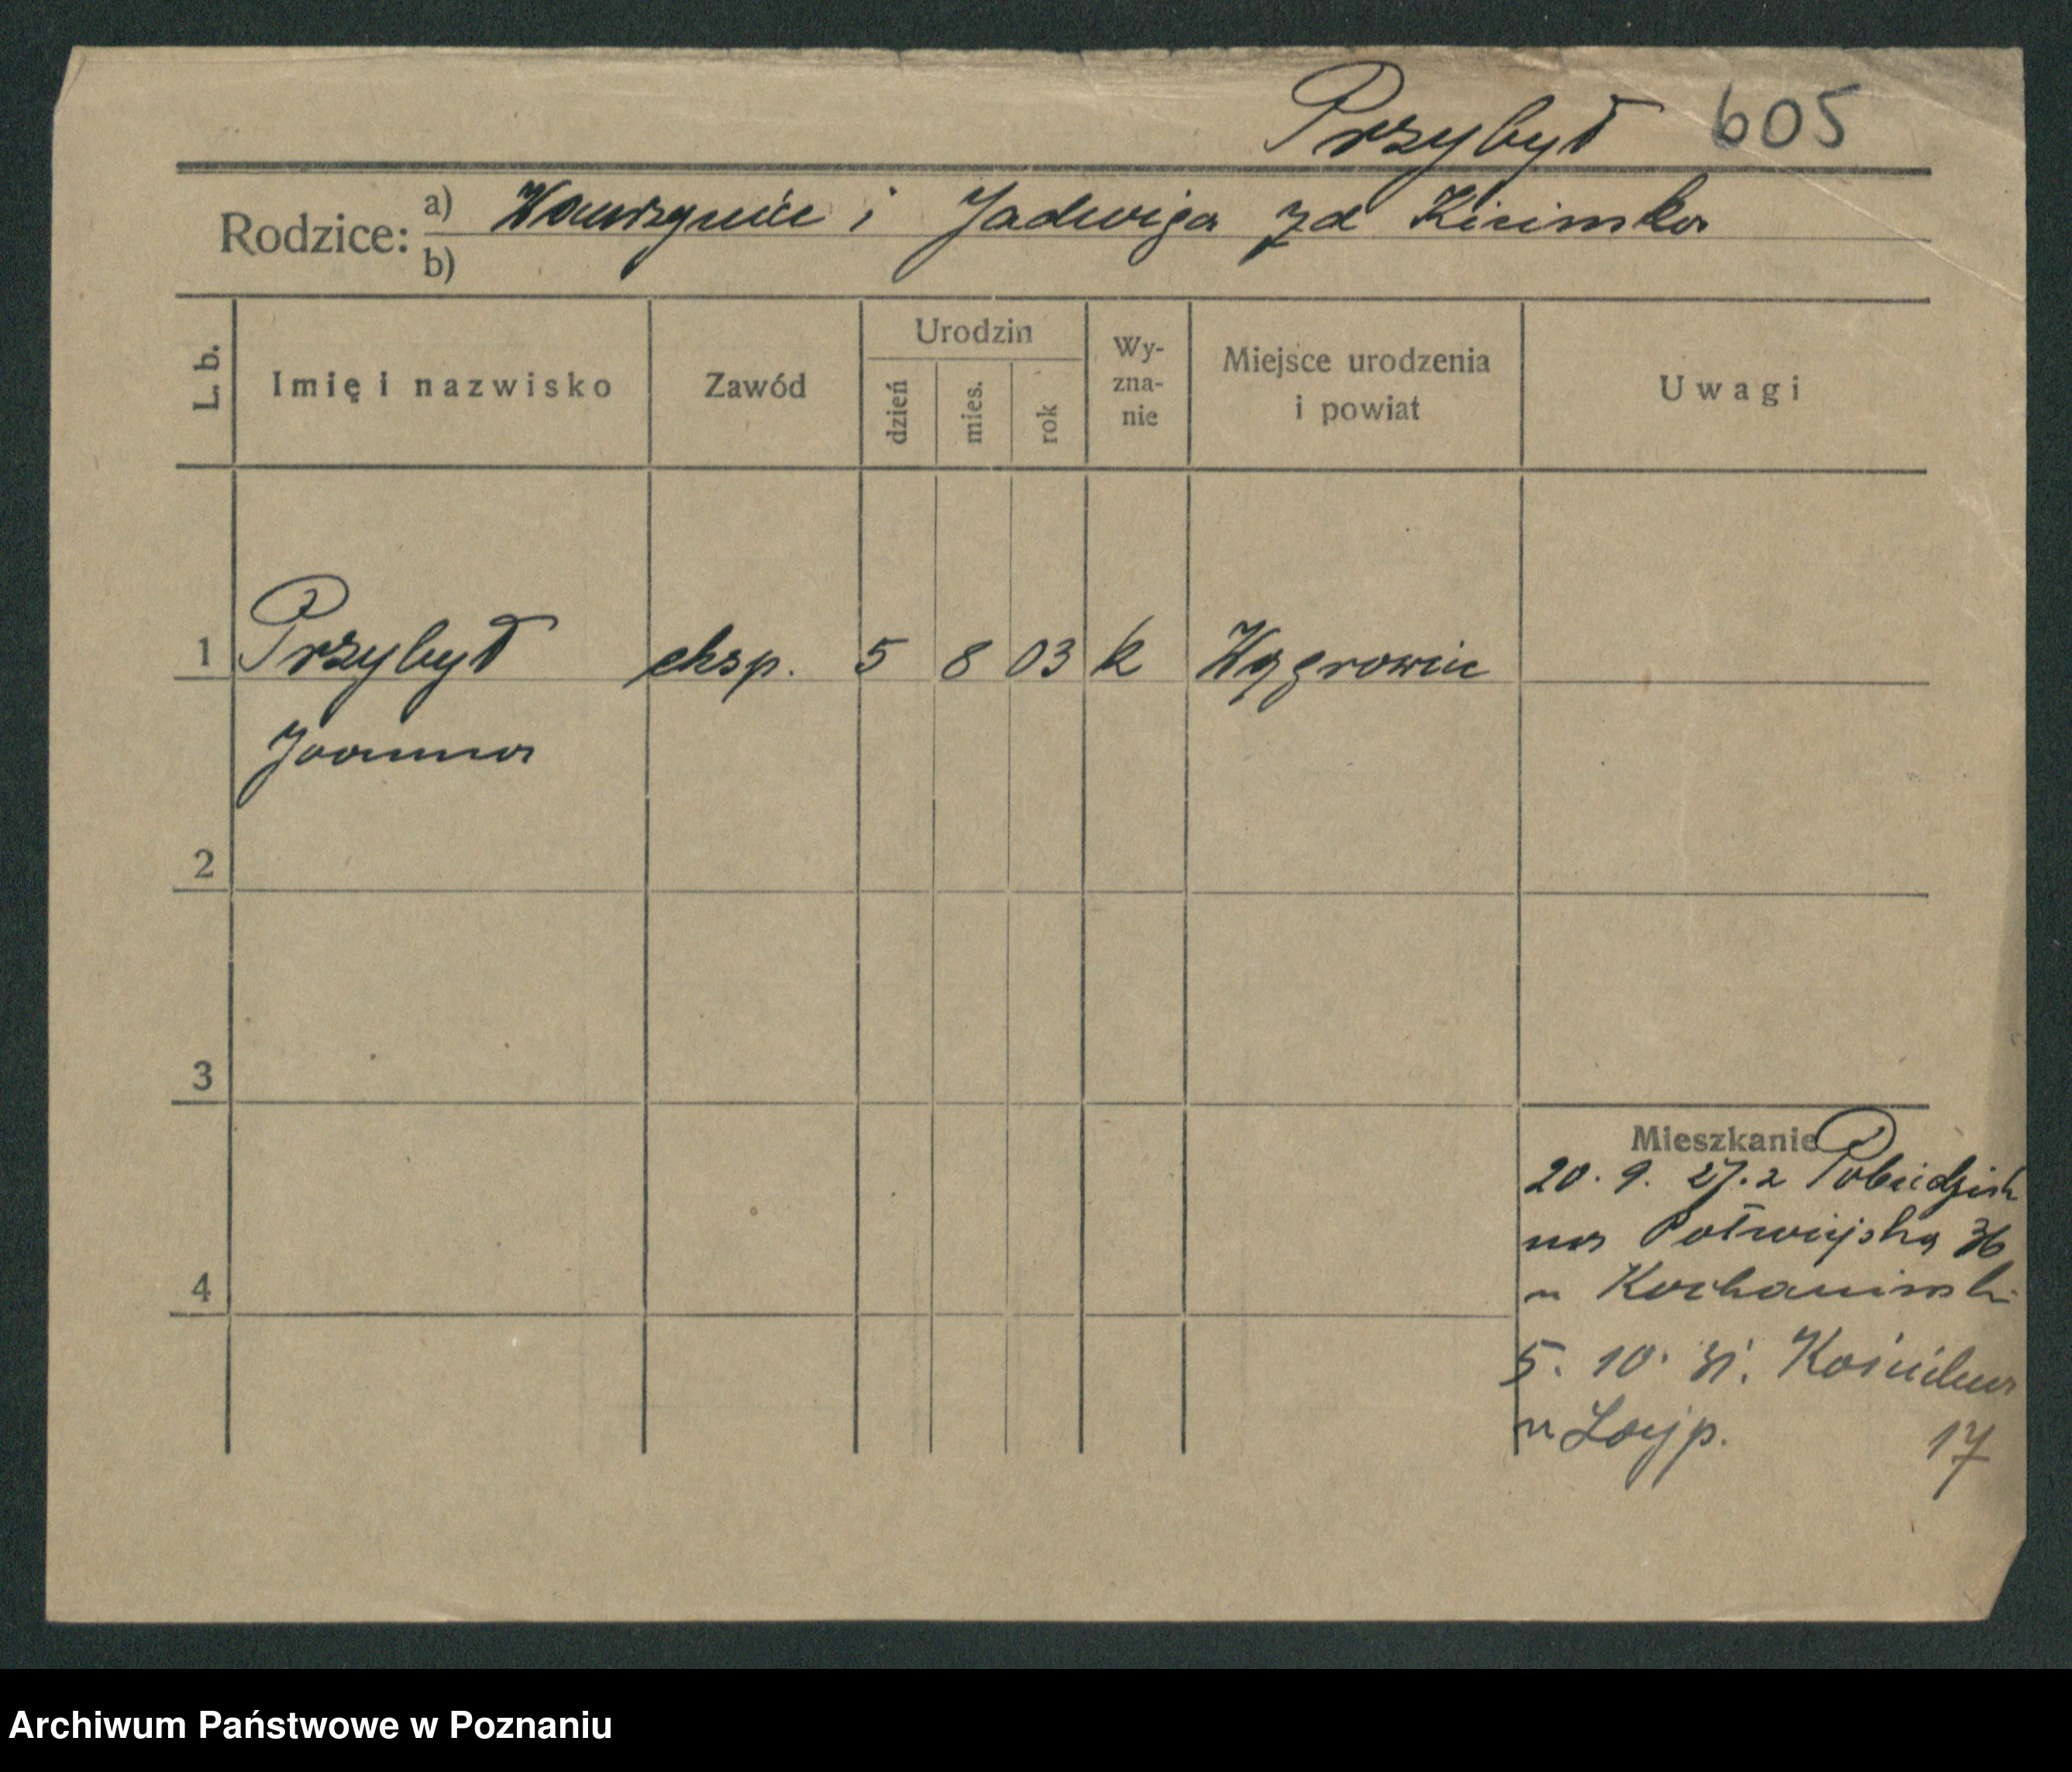 Przybył 605
Rodzice: a) Wawrzyniec i Jadwiga zd
b)
L. b. Imię i nazwisko Zawód Urodzin dzień mies. rok Wy-zna-nie Miejsce urodzenia i powiat Uwagi
1 Przybył eksp. 5 8 03 k Wągrowiec
Joanna
2
3
Mieszkanie
20. 9. 27. z Pobiedzisk
na Półwiejską 36
4
u Kochaniński
5. 10. 31. Kościelna
u 17
Archiwum Państwowe w Poznaniu